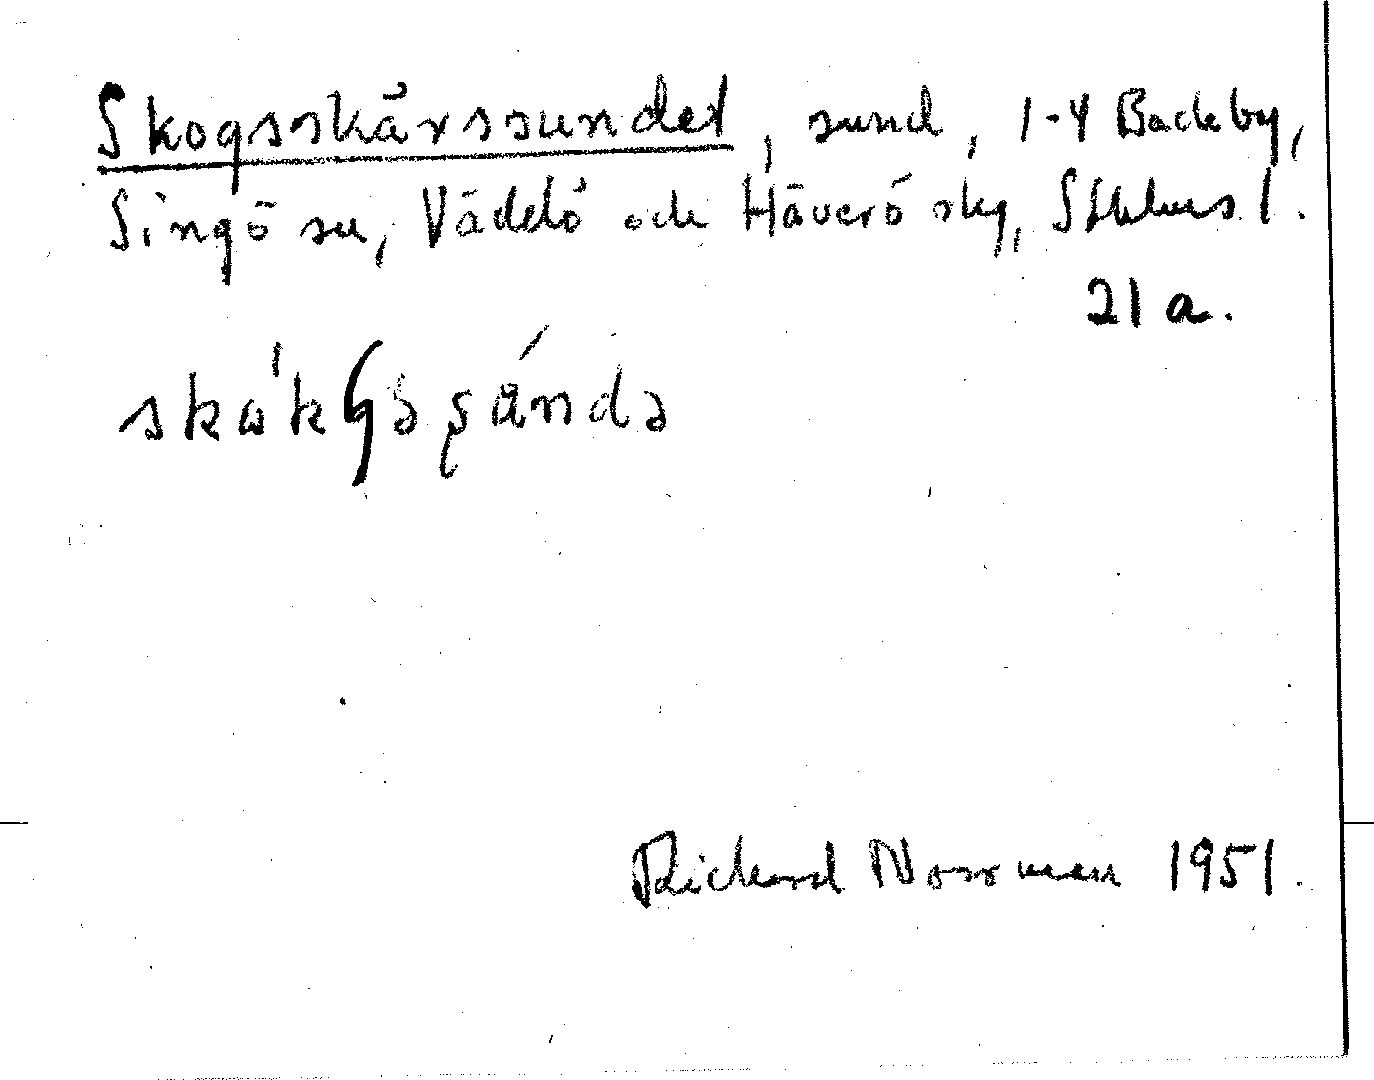 Skogsskärssundet, sund, 1-4 Backby,
Singö sn, Väddö och Häverö skg, Sthlms l.
21 a.
Richard Norrman 1951.